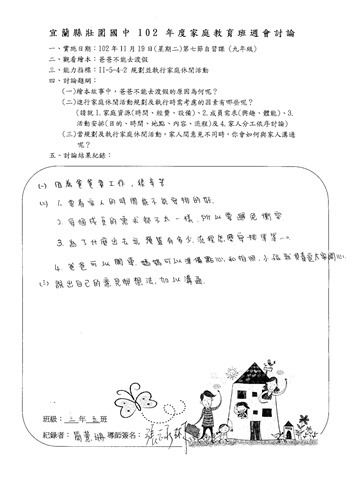 宜蘭縣壯圍國中 102 年度家庭教育班週會討論
一、實施日期：102 年 11 月 19 日(星期二)第七節自習課（九年級）
二、觀看繪本：爸爸不能去渡假
三、能力指標：II-5-4-2 規劃並執行家庭休閒活動
四、討論題綱：
(一)繪本故事中，爸爸不能去渡假的原因為何呢？
(二)進行家庭休閒活動規劃及執行時需考慮的因素有哪些呢？
(請就 1.家庭資源(時間、經費、設備)、2.成員需求(興趣、體能)、3.
活動安排(目的、時間、地點、內容、流程)及 4.家人分工依序討論)
(三)當規劃及執行家庭休閒活動，家人間意見不同時，你會如何與家人溝通
呢？
五、討論結果紀錄：
(一) 因為爸爸要工作，
(二) 1. 要看家人的時間能不能安排的好.
2. 每個成員的需求都不太一樣，所以要避免衝突
3. 為了什麼出去玩 預算有多少 流程怎麼安排等等…
4. 爸爸可以開車，媽媽可以準備點心，和拍照，小孩就負責逗大家開心.
(三) 說出自己的意見跟想法，加以溝通
班級： 三 年 五 班
紀錄者： 導師簽名：